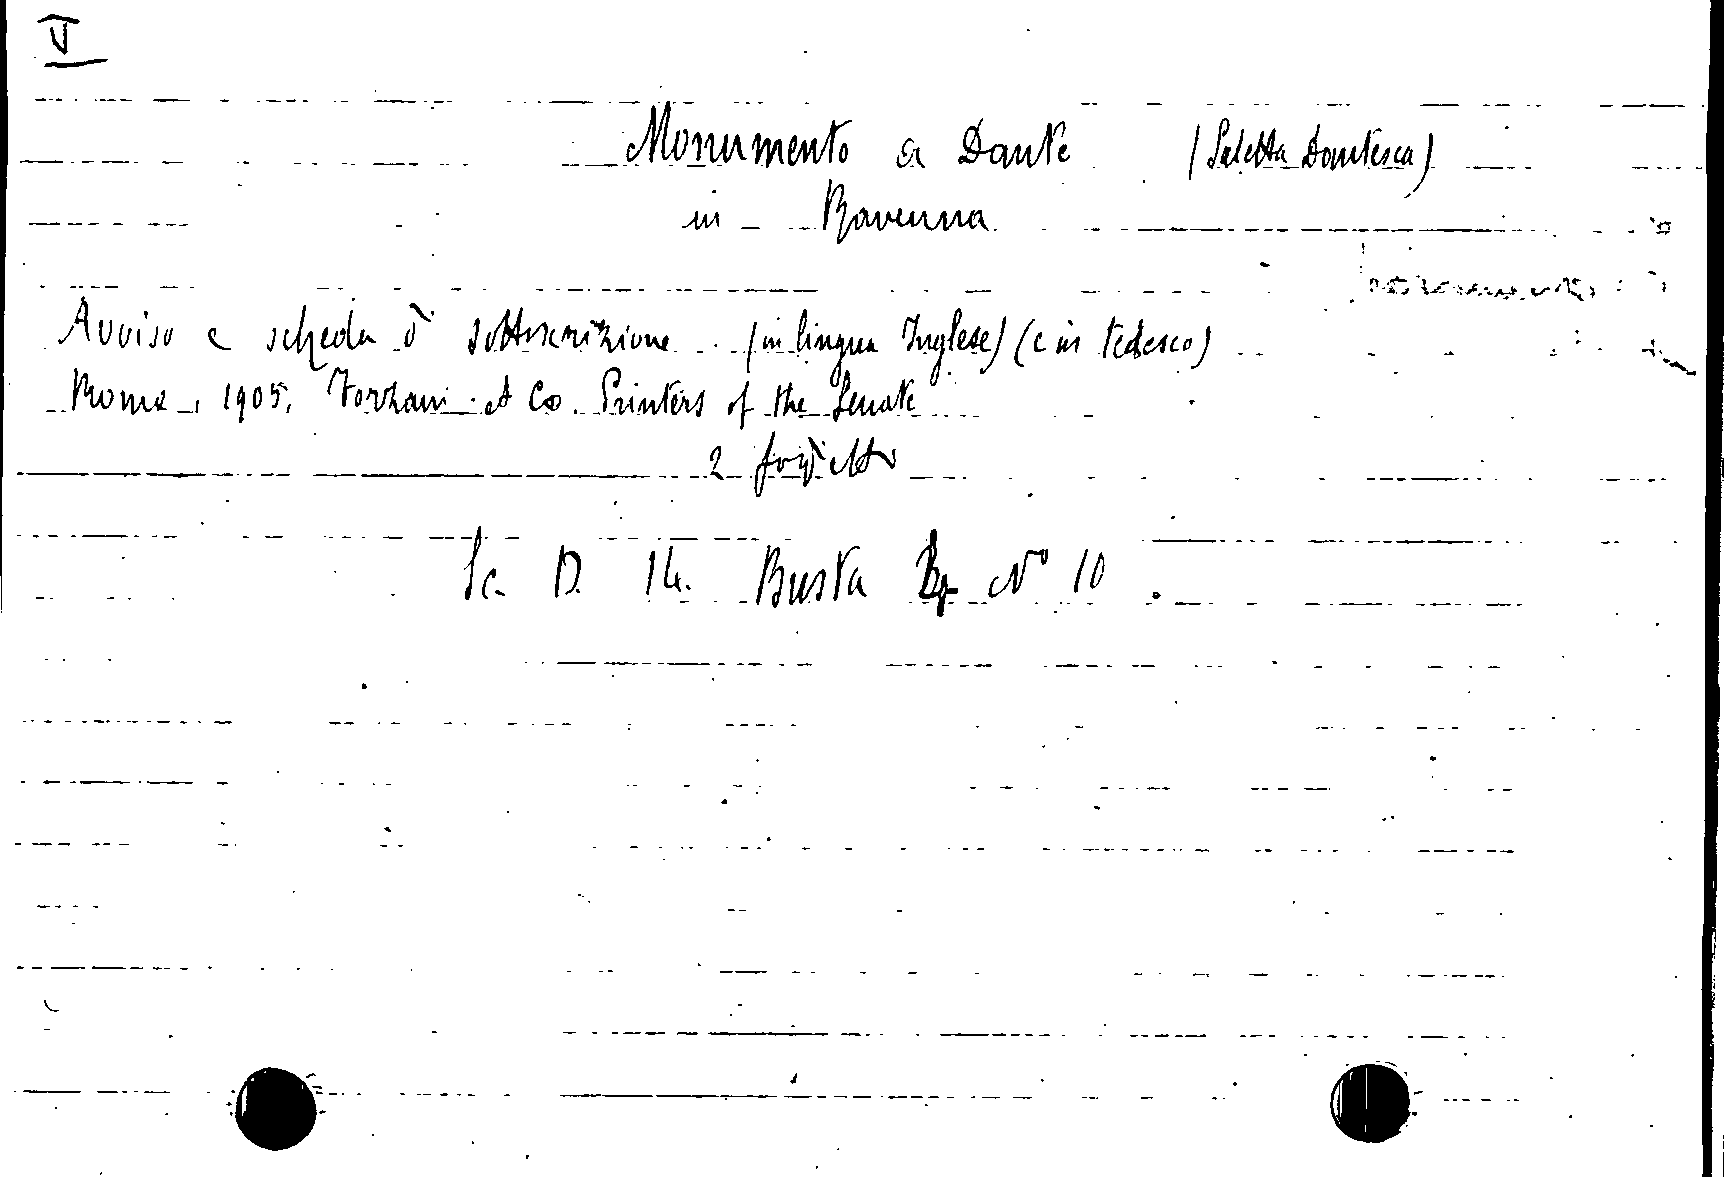 V
Monumento a Dante (Saletta Dantesca)
in Ravenna
Avviso e scheda di sottoscrizione (in lingua Inglese) (e in tedesco)
Roma, 1905. Forzani et Co. Printers of the Senate
2 foglietti
Sc. D. 14. Busta N° 10.